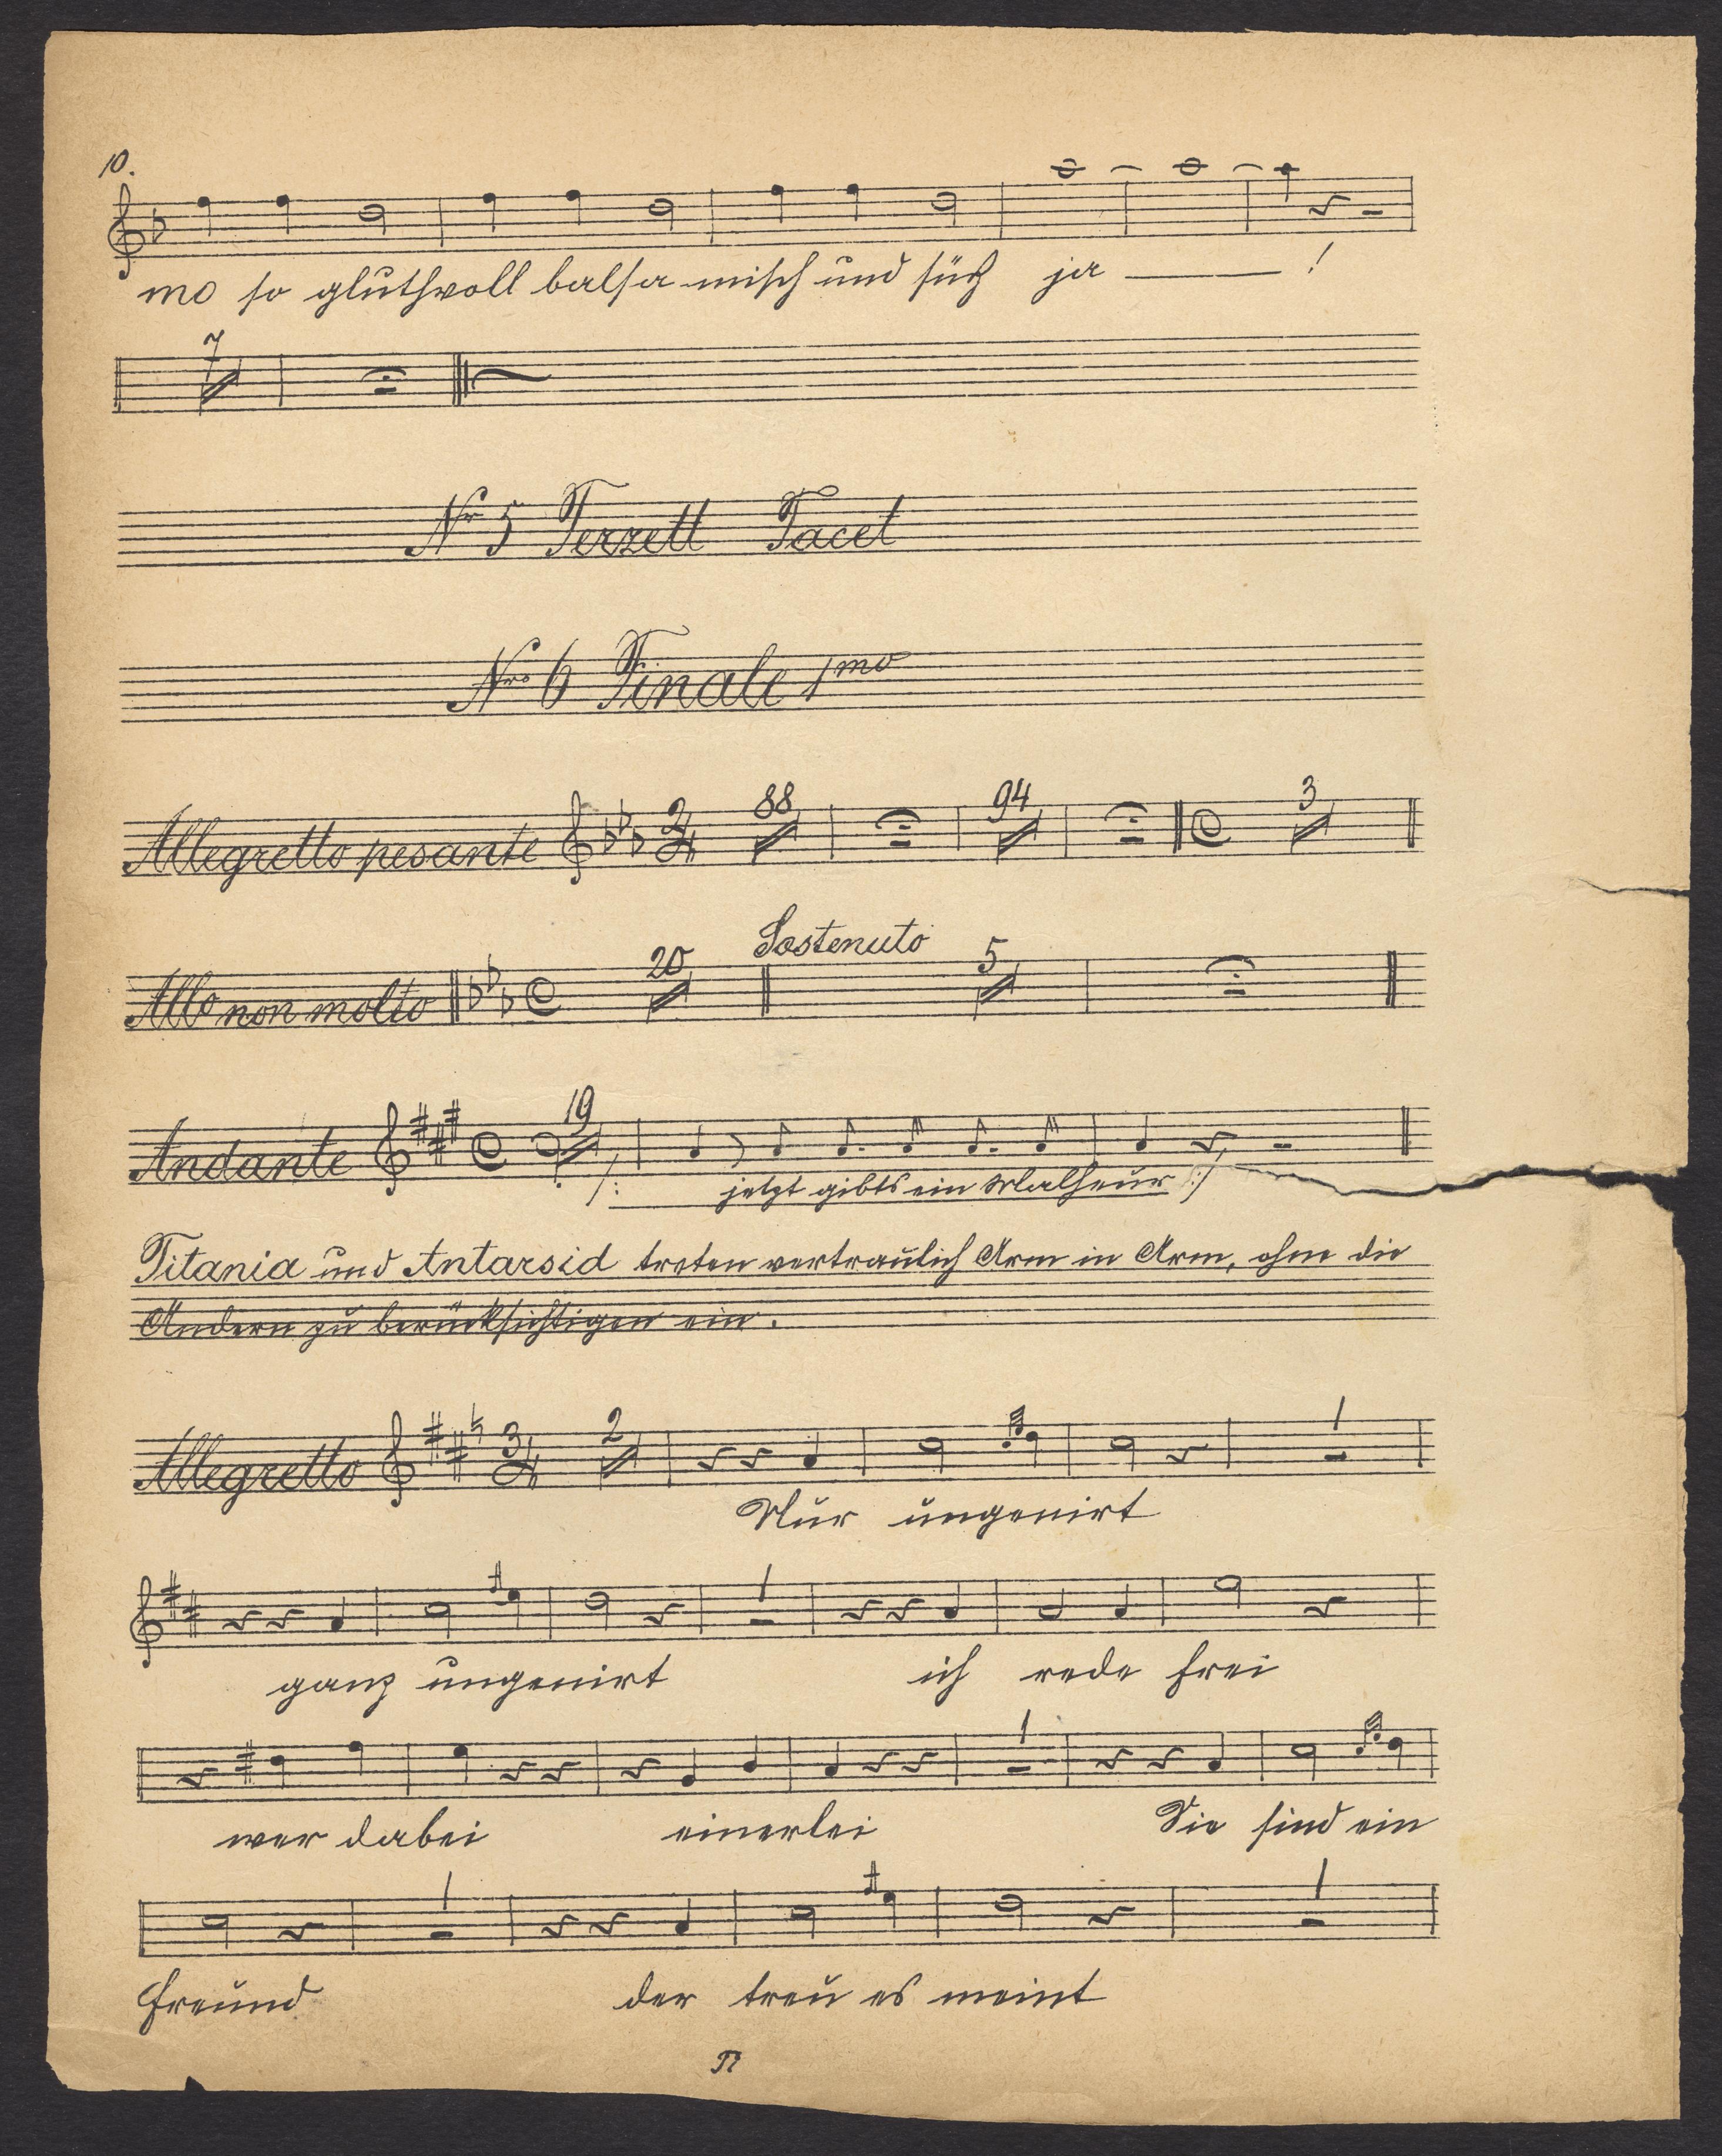 10.
mo so gluthvoll balsa-misch und süß ja ——— !
7
Nr 5 Terzett Tacet
Nro 6 Finale 1mo
Allegretto pesante 2/4 88 94 3
Sostenuto
Allo non molto 20 5
Andante 19
/: jetzt gibts ein Malheur :/
Titania und Antarsid treten vertraulich Arm in Arm, ohne die
Andern zu berücksichtigen ein.
Allegretto 3/4 2 1
Nur ungenirt
1
ganz ungenirt ich rede frei
1
wer dabei einerlei Sie sind ein
1 1
Freund der treu es meint